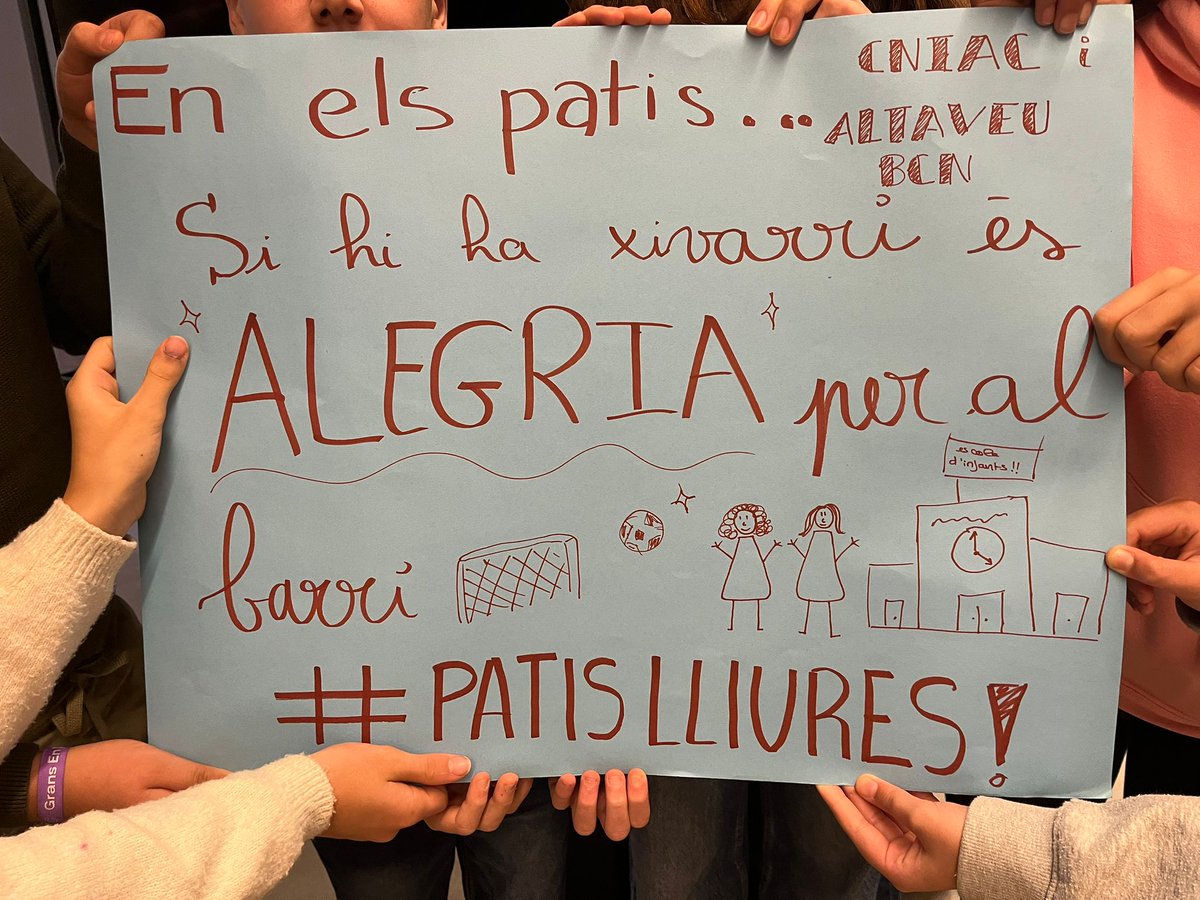 En els patis...
CNIAC i
ALTAVEU
BCN
Si hi ha xivarri és
ALEGRIA per al
escola
d'infants!!
barri
#PATIS LLIURES!
Grans En